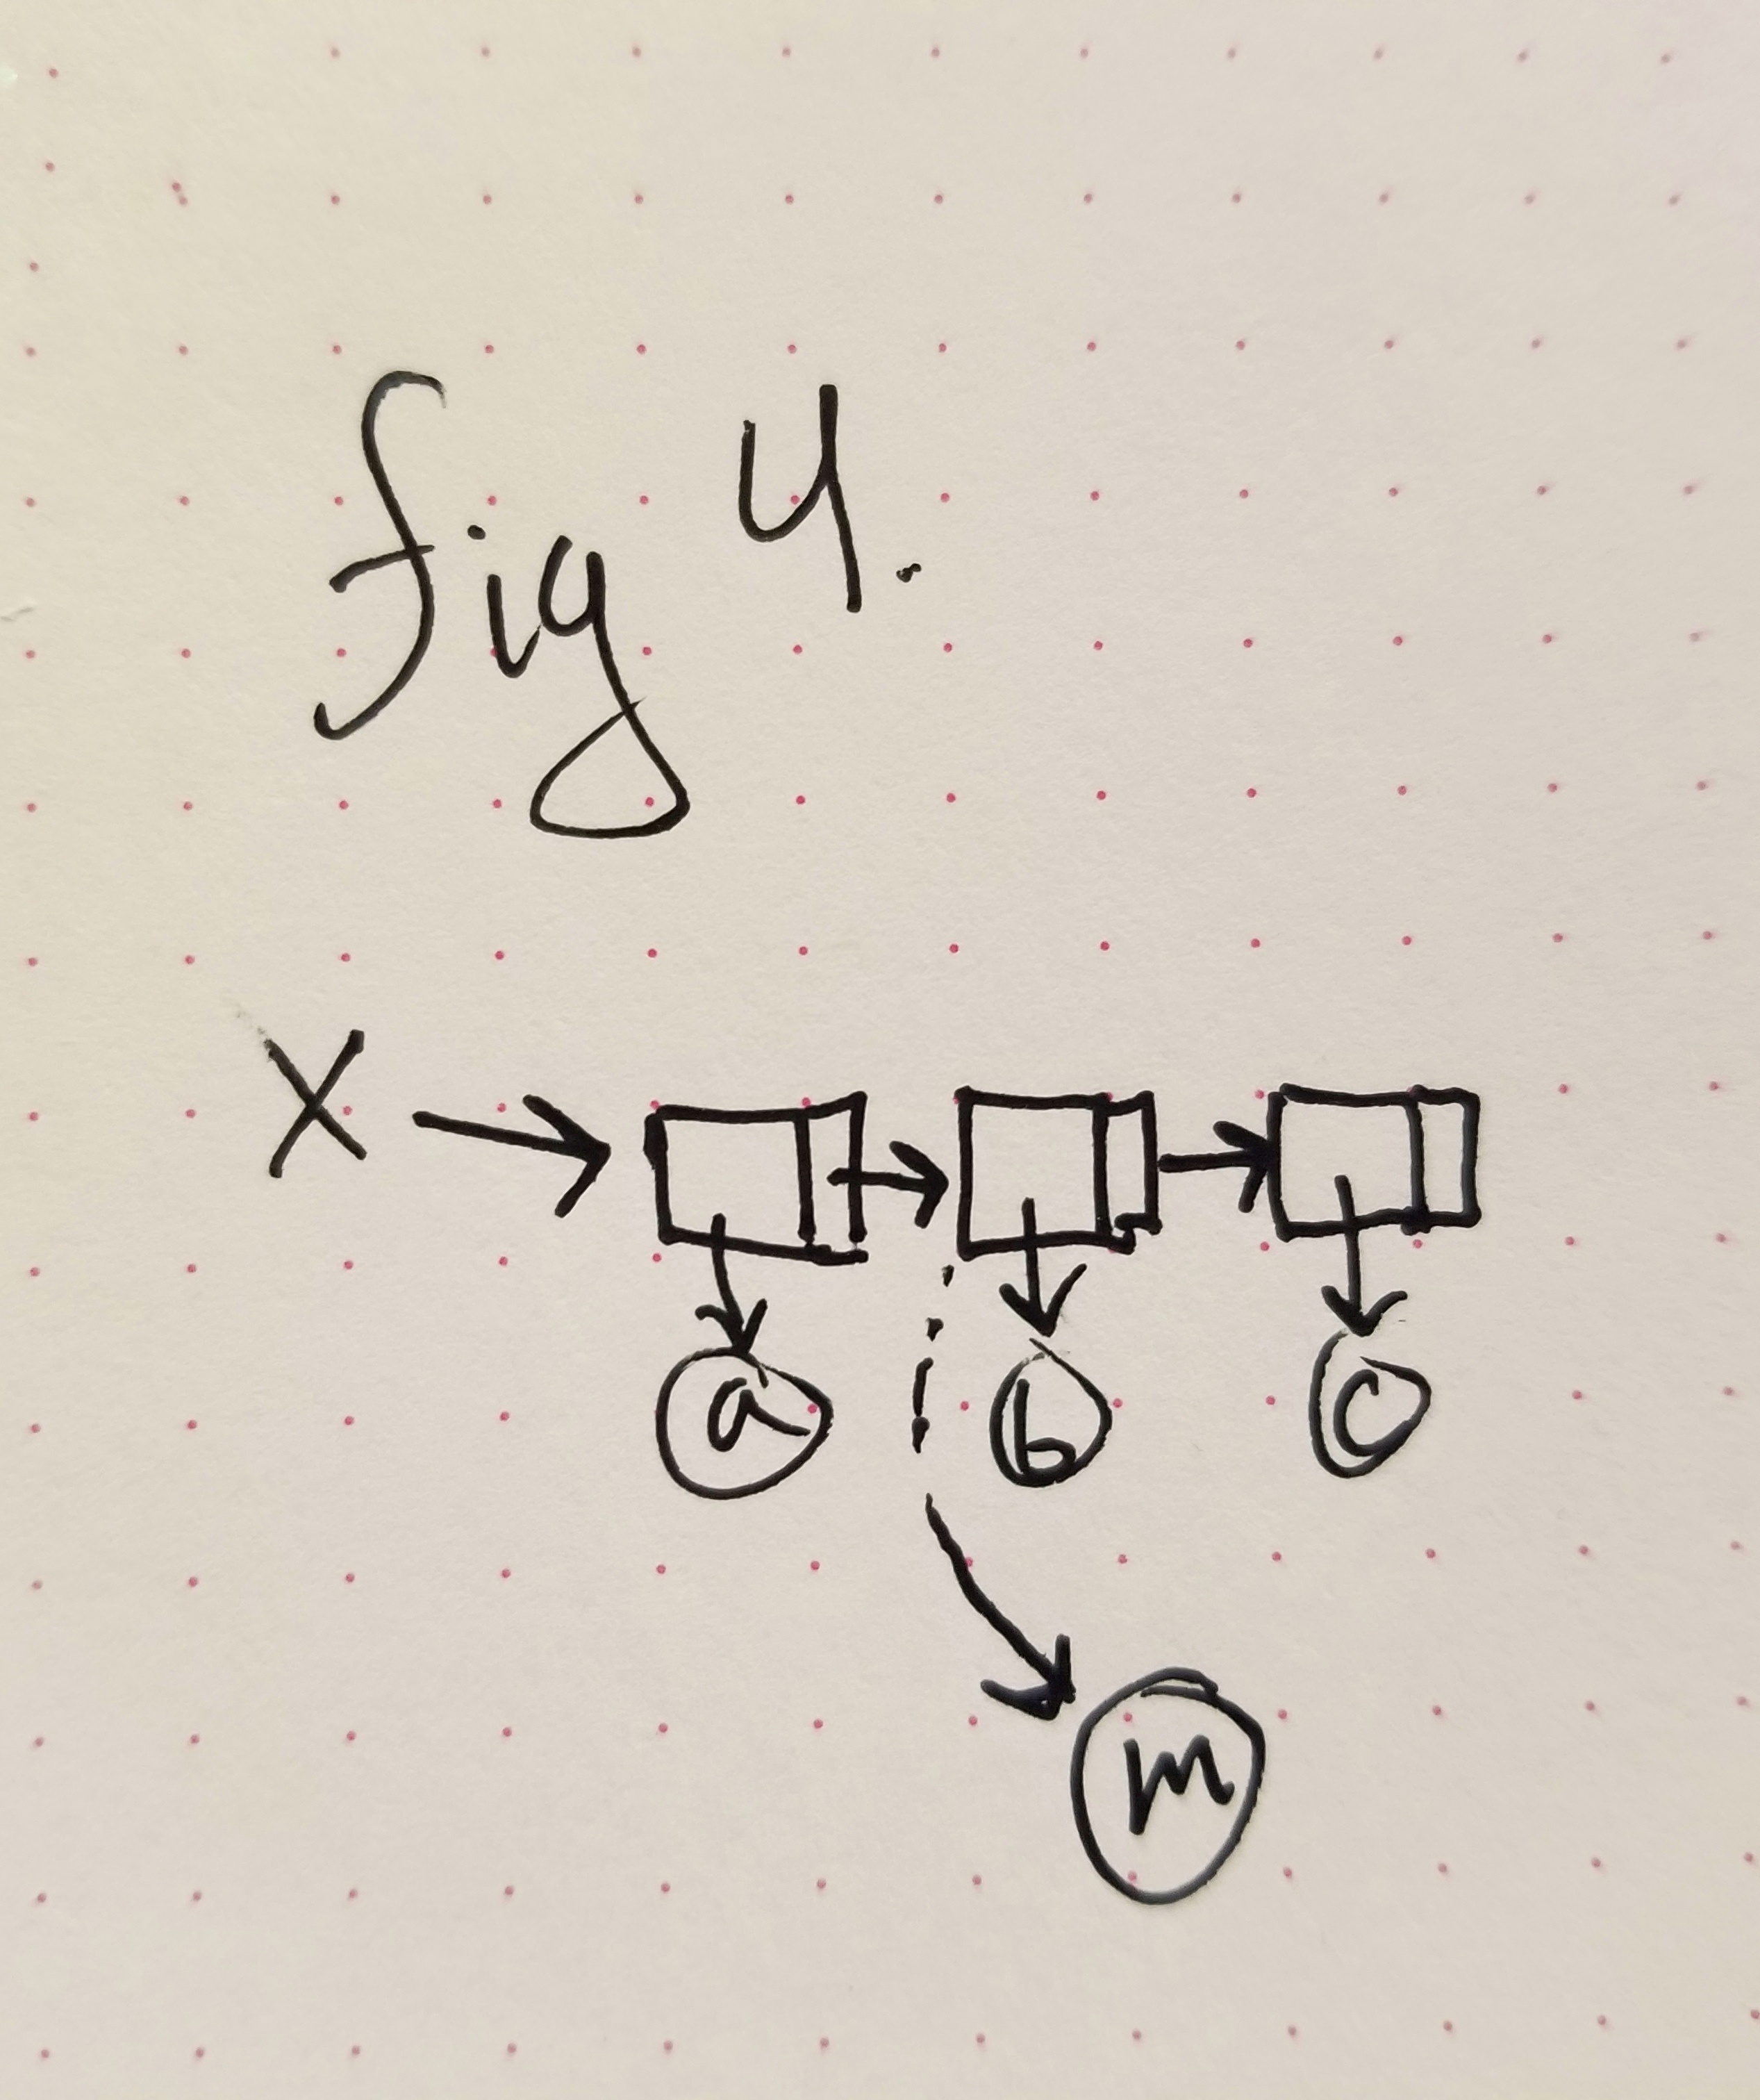 fig 4.
X
a b c
m